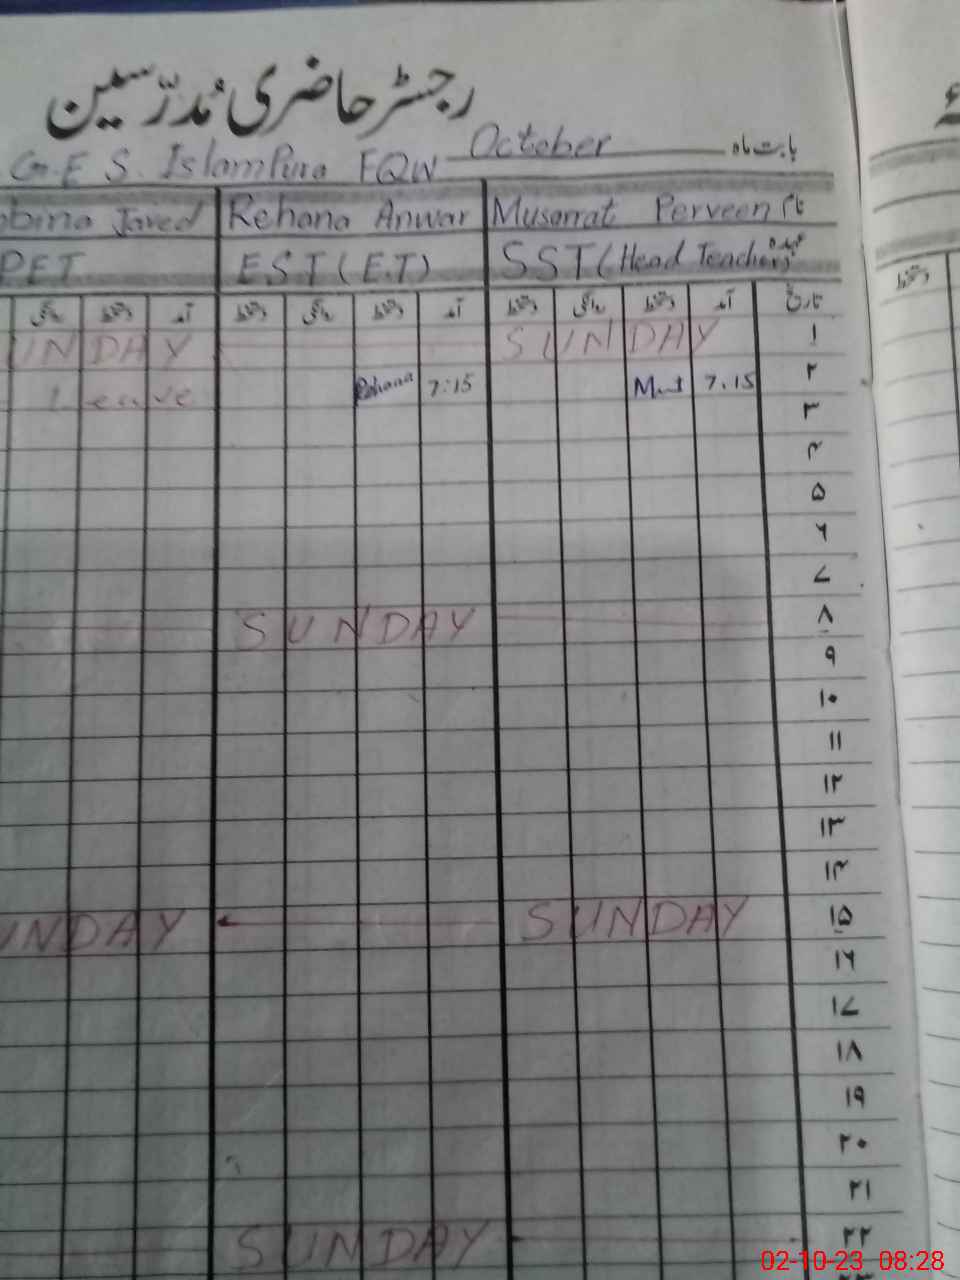 رجسٹر حاضری مُدرّسین
G.E S. IslamPura FQW October بابت ماہ
نام Musarrat Perveen Rehana Anwar bina Javed
عہدہ SST (Head Teacher) EST (E.T) PET
تاریخ آمد دستخط روانگی دستخط آمد دستخط روانگی دستخط آمد دستخط روانگی
۱ SUNDAY UNDAY
۲ 7.15 7:15 Rehana Leave
۳
۴
۵
۶
۷
۸ SUNDAY
۹
۱۰
۱۱
۱۲
۱۳
۱۴
۱۵ SUNDAY UNDAY
۱۶
۱۷
۱۸
۱۹
۲۰
۲۱
۲۲ SUNDAY
02-10-23 08:28